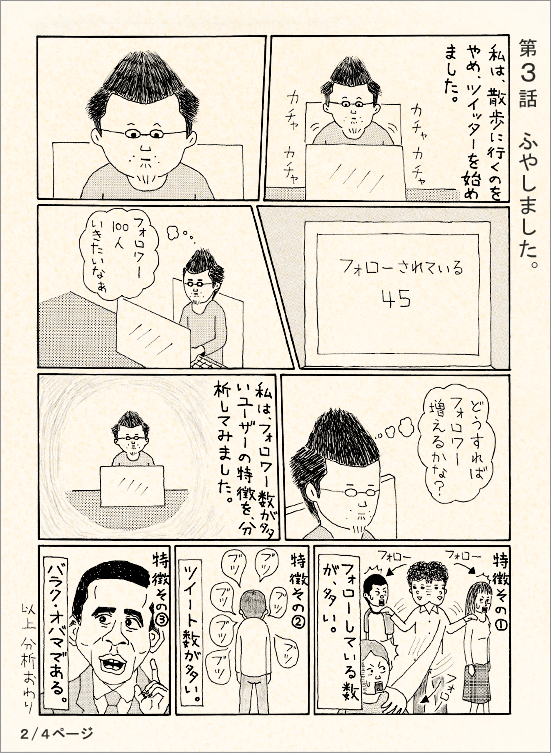 第3話 ふやしました。
私は、散歩に行くのを
やめ、ツイッターを始め
ました。
カチャ
カチャ
カチャ
カチャ
フォローされている
45
フォロワー
100人
いきたいなぁ
どうすれば
フォロワー
増えるかな?
私は、フォロワー数が多
いユーザーの特徴を、分
析してみました。
特徴その①
フォローしている数
が、多い。
フォロー
フォロー
フォロー
特徴その②
ツイート数が多い。
ブツ
ブツ
ブツ
ブツ
ブツ
ブツ
ブツ
特徴その③
バラク・オバマである。
以上 分析おわり
2/4ページ